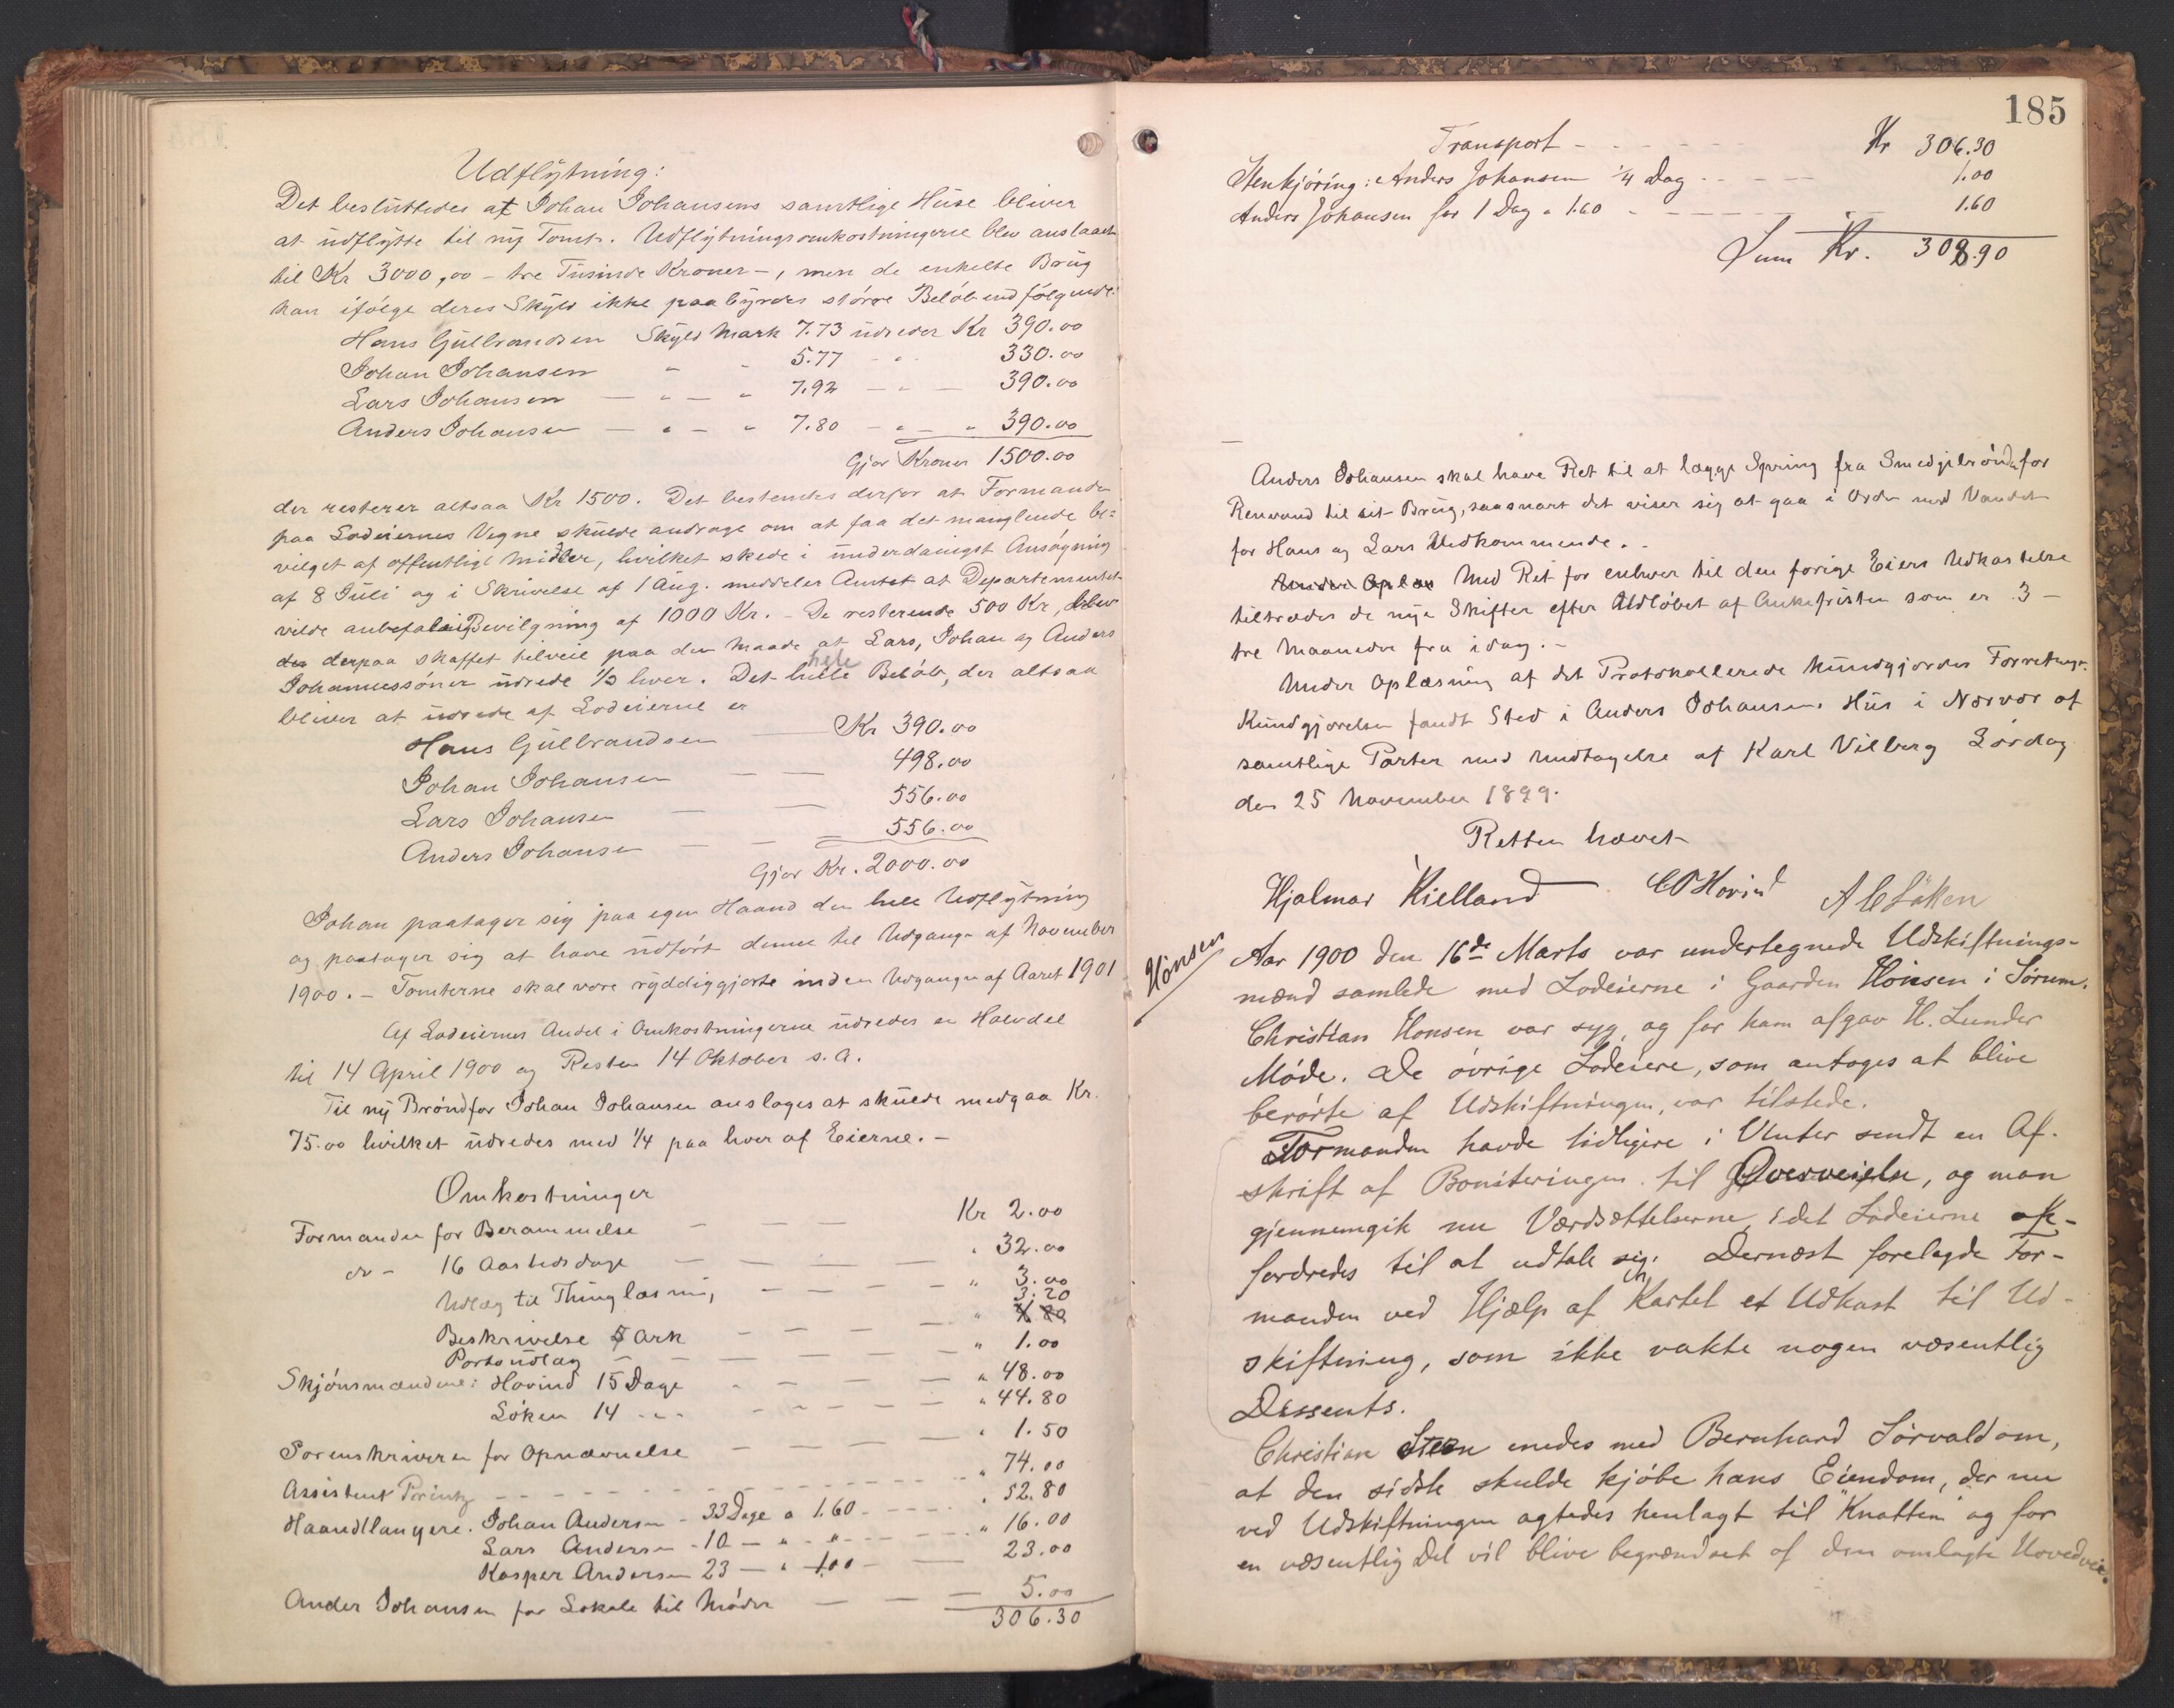 Udflytning:
Det besluttedes at Johan Johansens samtlige Huse bliver
at udflytte til ny Tomt. Udflytningsomkostningerne blev anslaaet
til Kr 3000,00 – tre Tusinde Kroner –, men de enkelte Brug
kan ifølge deres Skyld ikke paabyrdes større Beløb end følgende:
Hans Gulbrandsen Skyld Mark 7.73 udreder Kr 390.00
Johan Johansen " " 5.77 – " 330.00
Lars Johansen — " — " 7.92 — " — 390.00
Anders Johansen — " — " 7.80 – " – " 390.00
Gjør Kroner 1500.00
der resterer altsaa Kr 1500. Det bestemtes derfor at Formanden
paa Lodeiernes Vegne skulde andrage om at faa det manglende be=
vilget af offentlige Midler, hvilket skede i underdanigst Ansøgning
af 8 Juli og i Skrivelse af 1 Aug. meddeler Amtet at Departementet
vilde anbefale Bevilgning af 1000 Kr. – De resterende 500 Kr, blev
derpaa skaffet tilveie paa den Maade at Lars, Johan og Anders
Johannessøner udrede 1/3 hver. Det hele Beløb, der altsaa
bliver at udrede af Lodeierne er
Hans Gulbrandsen — Kr 390.00
Johan Johansen — — 498.00
Lars Johansen — — 556.00
Anders Johansen — — 556.00
Gjør Kr. 2000.00
Johan paatager sig paa egen Haand den hele Udflytning
og paatager sig at have udført denne til Udgangen af November
1900. – Tomterne skal være ryddiggjorte inden Udgangen af Aaret 1901
Af Lodeiernes Andel i Omkostningerne udredes en Halvdel
til 14 April 1900 og Resten 14 Oktober s.a.
Til ny Brønd for Johan Johansen ansloges at skulde medgaa Kr.
75.00 hvilket udredes med 1/4 paa hver af Eierne. –
Omkostninger
Formanden for Berammelse — — — Kr 2.00
do – 16 Aastedsdage — — — — " 32.00
Udlæg til Thinglæsning — — — " 3.00
3.20
Beskrivelse Ark — — — —
Portoudlæg — — — — " 1.00
Skjønsmændene: Hovind 15 Dage — — — " 48.00
Løken 14 – " – — — — " 44.80
Sorenskriveren for Opnævnelse — — — " 1.50
Assistent Printz — — — " 74.00
Haandlangere. Johan Andersen – 33 Dage a 1.60 — — " 52.80
Lars Andersen – 10 — " – " — — " 16.00
Kasper Andersen 23 — " 1.00 — — 23.00
Ander Johansen for Lokale til Møder — — — 5.00
306.30
185
Transport – – – – Kr 306.30
Stenkjøring: Anders Johansen 1/4 Dag – – – 1.00
Anders Johansen for 1 Dag a 1.60 – – – 1.60
Sum Kr. 308.90
Anders Johansen skal have Ret til at lægge Spring fra Smedjebrønden for
Renvand til sit Brug, saasnart det viser sig at gaa i Orden med Vandet
for Hans og Lars Vedkommende. –
Med Ret for enhver til den forige Eiers Udkastelse
tiltrædes de nye Skifter efter Udløbet af Ankefristen som er 3 –
tre Maaneder fra idag. –
Under Oplæsning af det Protokollerede kundgjordes Forretningen.
Kundgjørelsen fandt Sted i Anders Johansens Hus i Nærvær af
samtlige Parter med Undtagelse af Karl Vilberg Lørdag
den 25 November 1899.
Retten hævet
Hjalmar Kielland C O Hovind A C Løken
Hønsen
Aar 1900 den 16de Marts var undertegnede Udskiftnings-
mænd samlede med Lodeierne i Gaarden Hønsen i Sørum.
Christian Honsen var syg, og for ham afgav H. Lunder
Møde. De øvrige Lodeiere, som antoges at blive
berørte af Udskiftningen, var tilstede.
Formanden havde tidligere i Vinter sendt en Af-
skrift af Boniteringen til Overveielse, og man
gjennemgik nu Værdsættelserne, idet Lodeierne af-
fordredes til at udtale sig. Dernæst forelagde For-
manden ved Hjælp af Kartet et Udkast til Ud-
skiftning, som ikke vakte nogen væsentlig
Dissents.
Christian Steen enedes med Bernhard Sørvald om,
at den sidste skulde kjøbe hans Eiendom, der nu
ved Udskiftningen agtedes henlagt til "Knatten" og for
en væsentlig Del vil blive begrændset af den omlagte Hovedvei.